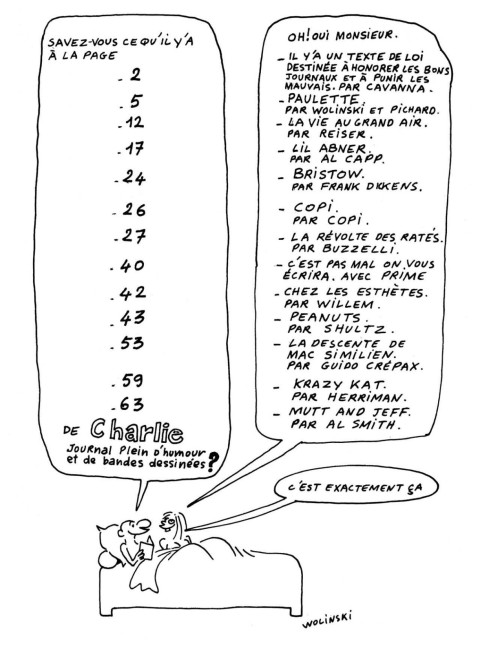 SAVEZ-VOUS CE QU'IL Y'A
À LA PAGE
- 2
- 5
- 12
- 17
- 24
- 26
- 27
- 40
- 42
- 43
- 53
- 59
- 63
DE Charlie
JOURNAL PLEIN D'HUMOUR
et de bandes dessinées ?
OH! OUI MONSIEUR.
- IL Y'A UN TEXTE DE LOI
DESTINÉE À HONORER LES BONS
JOURNAUX ET À PUNIR LES
MAUVAIS. PAR CAVANNA.
- PAULETTE.
PAR WOLINSKI ET PICHARD.
- LA VIE AU GRAND AIR.
PAR REISER.
- LIL ABNER.
PAR AL CAPP.
- BRISTOW.
PAR FRANK DICKENS.
- COPI.
PAR COPI.
- LA RÉVOLTE DES RATÉS.
PAR BUZZELLI.
- C'EST PAS MAL ON VOUS
ÉCRIRA. AVEC PRIME
- CHEZ LES ESTHÈTES.
PAR WILLEM.
- PEANUTS.
PAR SHULTZ.
- LA DESCENTE DE
MAC SIMILIEN.
PAR GUIDO CRÉPAX.
- KRAZY KAT.
PAR HERRIMAN.
- MUTT AND JEFF.
PAR AL SMITH.
C'EST EXACTEMENT ÇA
WOLINSKI